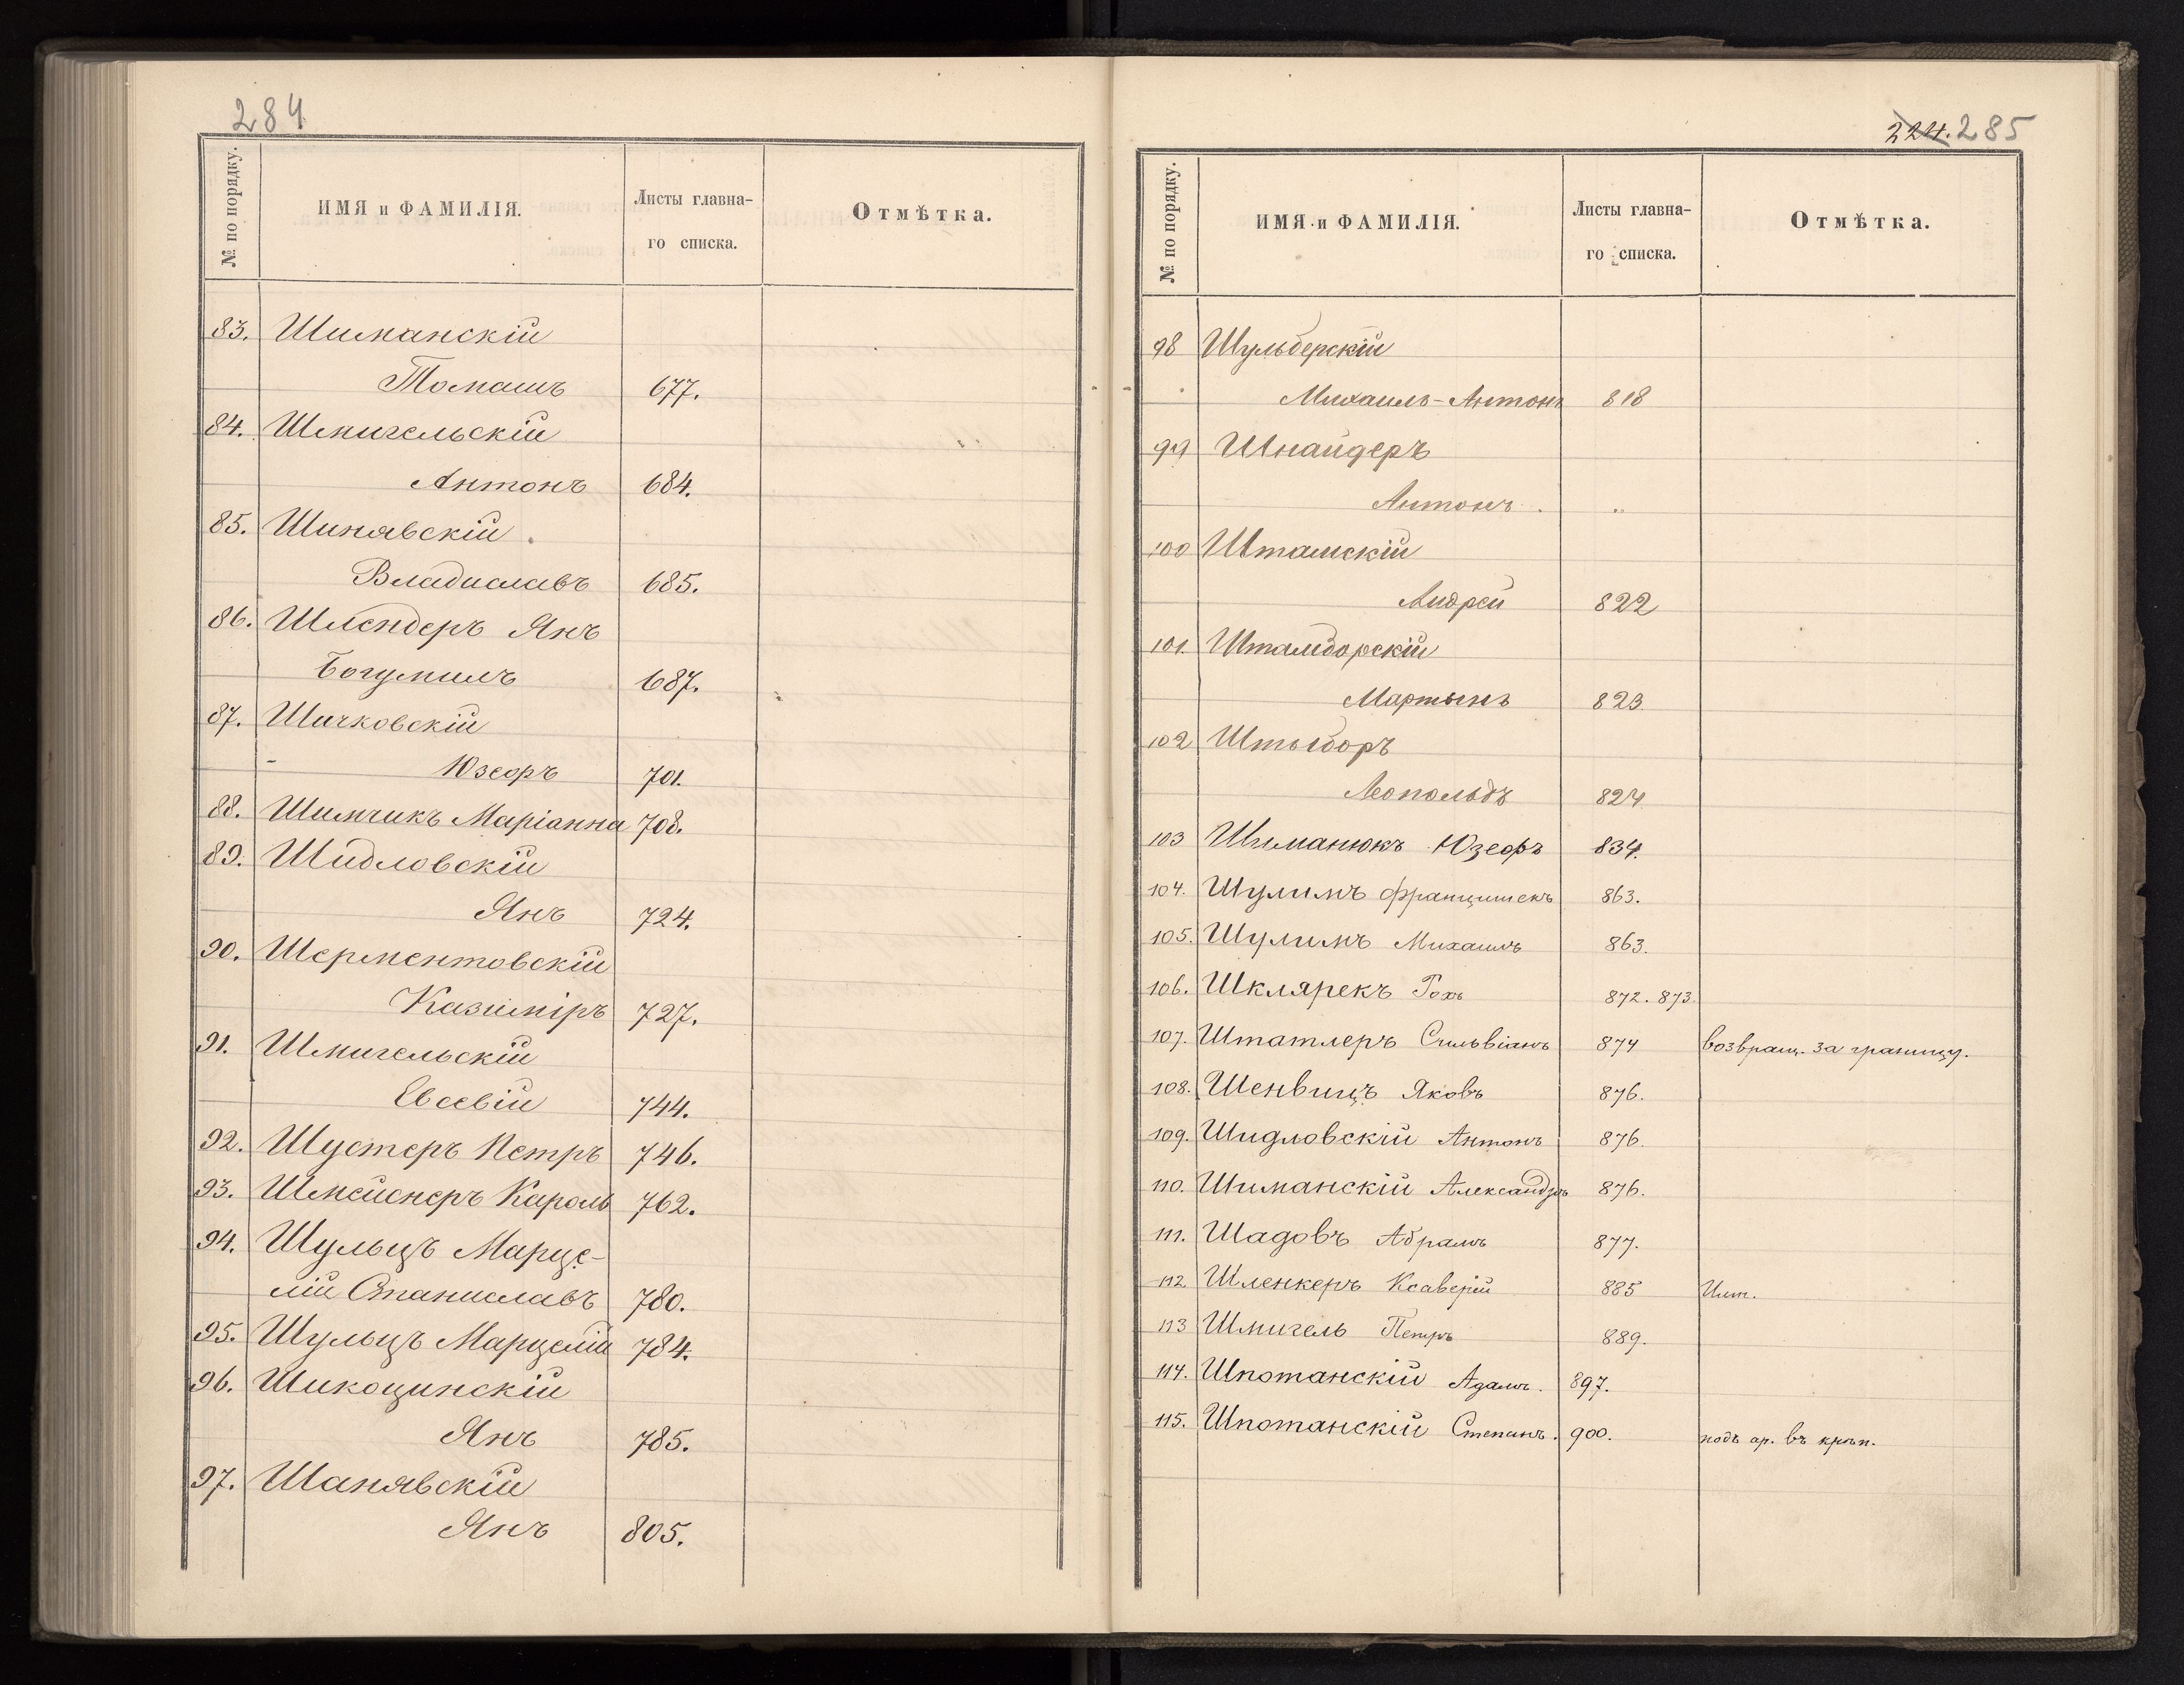 284
№ по порядку. ИМЯ и ФАМИЛІЯ. Листы главна-го списка. Отмѣтка.
83. Шиманскій
Томашъ 677.
84. Шмигельскій
Антонъ 684.
85. Шинявскій
Владиславъ 685.
86. Шлендеръ Янъ
Богумилъ 687.
87. Шичковскій
Юзефъ 701.
88. Шимчикъ Маріанна 708.
89. Шидловскій
Янъ 724.
90. Шерментовскій
Казимiръ 727.
91. Шмигельскій
Евсевій 744.
92. Шустеръ Петръ 746.
93. Шмейснеръ Кароль 762.
94. Шульцъ Марце-
лій Станиславъ 780.
95. Шульцъ Марцелій 784.
96. Шикоцинскій
Янъ 785.
97. Шанявскій
Янъ 805.
224. 285
№ по порядку. ИМЯ и ФАМИЛІЯ. Листы главна-го списка. Отмѣтка.
98 Шульберскій
Михаилъ-Антонъ 818
99 Шнайдеръ
Антонъ. "
100 Штамскій
Андрей 822
101. Штамборскій
Мартынъ 823.
102 Штыборъ
Леопольдъ 824
103 Шиманюкъ Юзефъ 834.
104. Шулимъ Францишекъ 863.
105. Шулимъ Михаилъ 863.
106. Шклярекъ Рохъ 872. 873.
107. Штатлеръ Сильвіанъ 874 возвращ. за границу.
108. Шенвицъ Яковъ 876.
109. Шидловскій Антонъ 876.
110. Шиманскій Александръ 876.
111. Шадовъ Абрамъ 877.
112 Шленкеръ Ксаверій 885
113 Шмигель Петръ 889.
114. Шпотанскій Адамъ. 897.
115. Шпотанскій Степанъ. 900. подъ ар. въ крѣп.